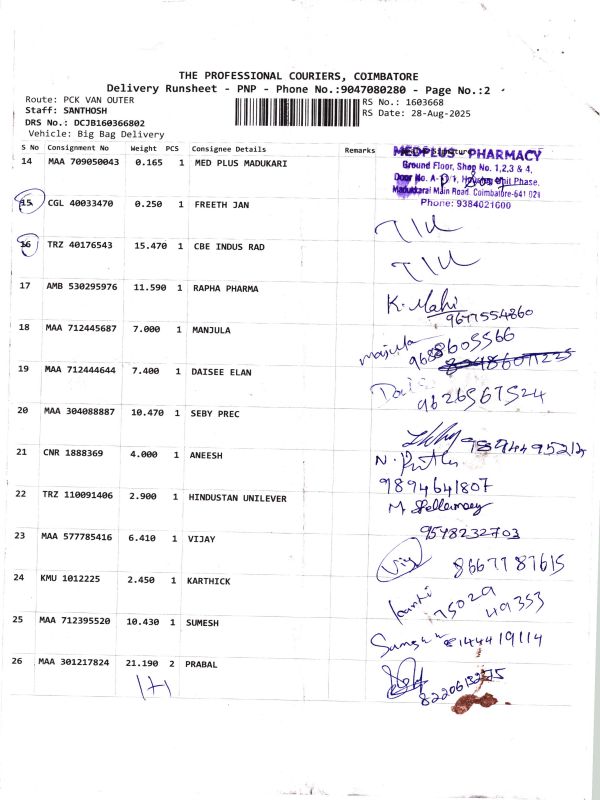 THE PROFESSIONAL COURIERS, COIMBATORE
Delivery Runsheet - PNP - Phone No.:9047080280 - Page No.:2
Route: PCK VAN OUTER
RS No.: 1603668
Staff: SANTHOSH
RS Date: 28-Aug-2025
DRS No.: DCJB160366802
Vehicle: Big Bag Delivery
S No Consignment No Weight PCS Consignee Details Remarks Signature
14 MAA 709050043 0.165 1 MED PLUS MADUKARI
MEDPLUS PHARMACY
Ground Floor, Shop No. 1,2,3 & 4,
Door No. Phase,
Madukkarai Main Road, Coimbatore-641 021
Phone: 9384021600
15 CGL 40033470 0.250 1 FREETH JAN
16 TRZ 40176543 15.470 1 CBE INDUS RAD
17 AMB 530295976 11.590 1 RAPHA PHARMA
K. Mahi
9677554860
18 MAA 712445687 7.000 1 MANJULA
manjula 9688605566
19 MAA 712444644 7.400 1 DAISEE ELAN
9626567524
20 MAA 304088887 10.470 1 SEBY PREC
9894495212
21 CNR 1888369 4.000 1 ANEESH
N.
9894641807
22 TRZ 110091406 2.900 1 HINDUSTAN UNILEVER
M
9548232703
23 MAA 577785416 6.410 1 VIJAY
Vijay
8667787615
24 KMU 1012225 2.450 1 KARTHICK
75029
49353
25 MAA 712395520 10.430 1 SUMESH
8144419114
26 MAA 301217824 21.190 2 PRABAL
1+1